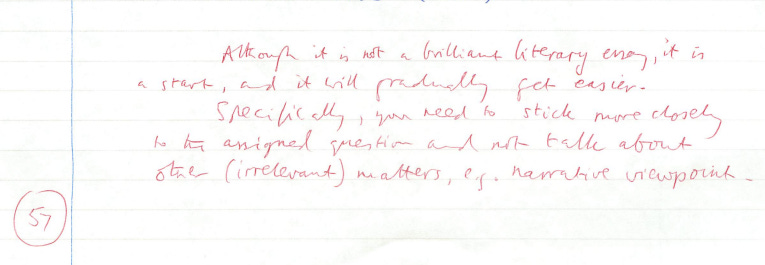 Although it is not a brilliant literary essay, it is
a start, and it will gradually get easier.
Specifically, you need to stick more closely
to the assigned question and not talk about
other (irrelevant) matters, e.g. narrative viewpoint.
57